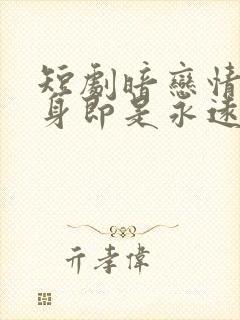 短劇暗戀情
身即是永遠
亓孝偉